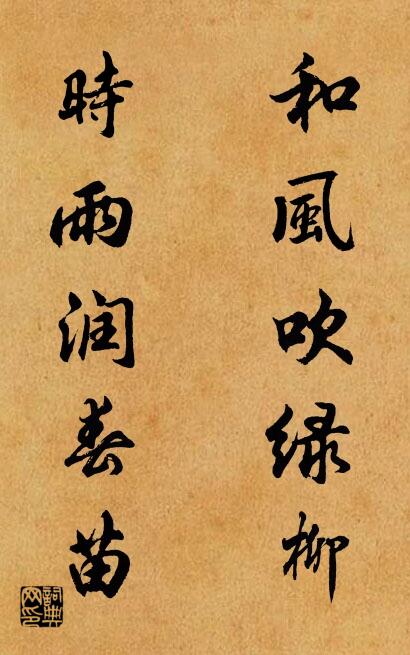 和風吹綠柳
時雨潤春苗
詞典
网印